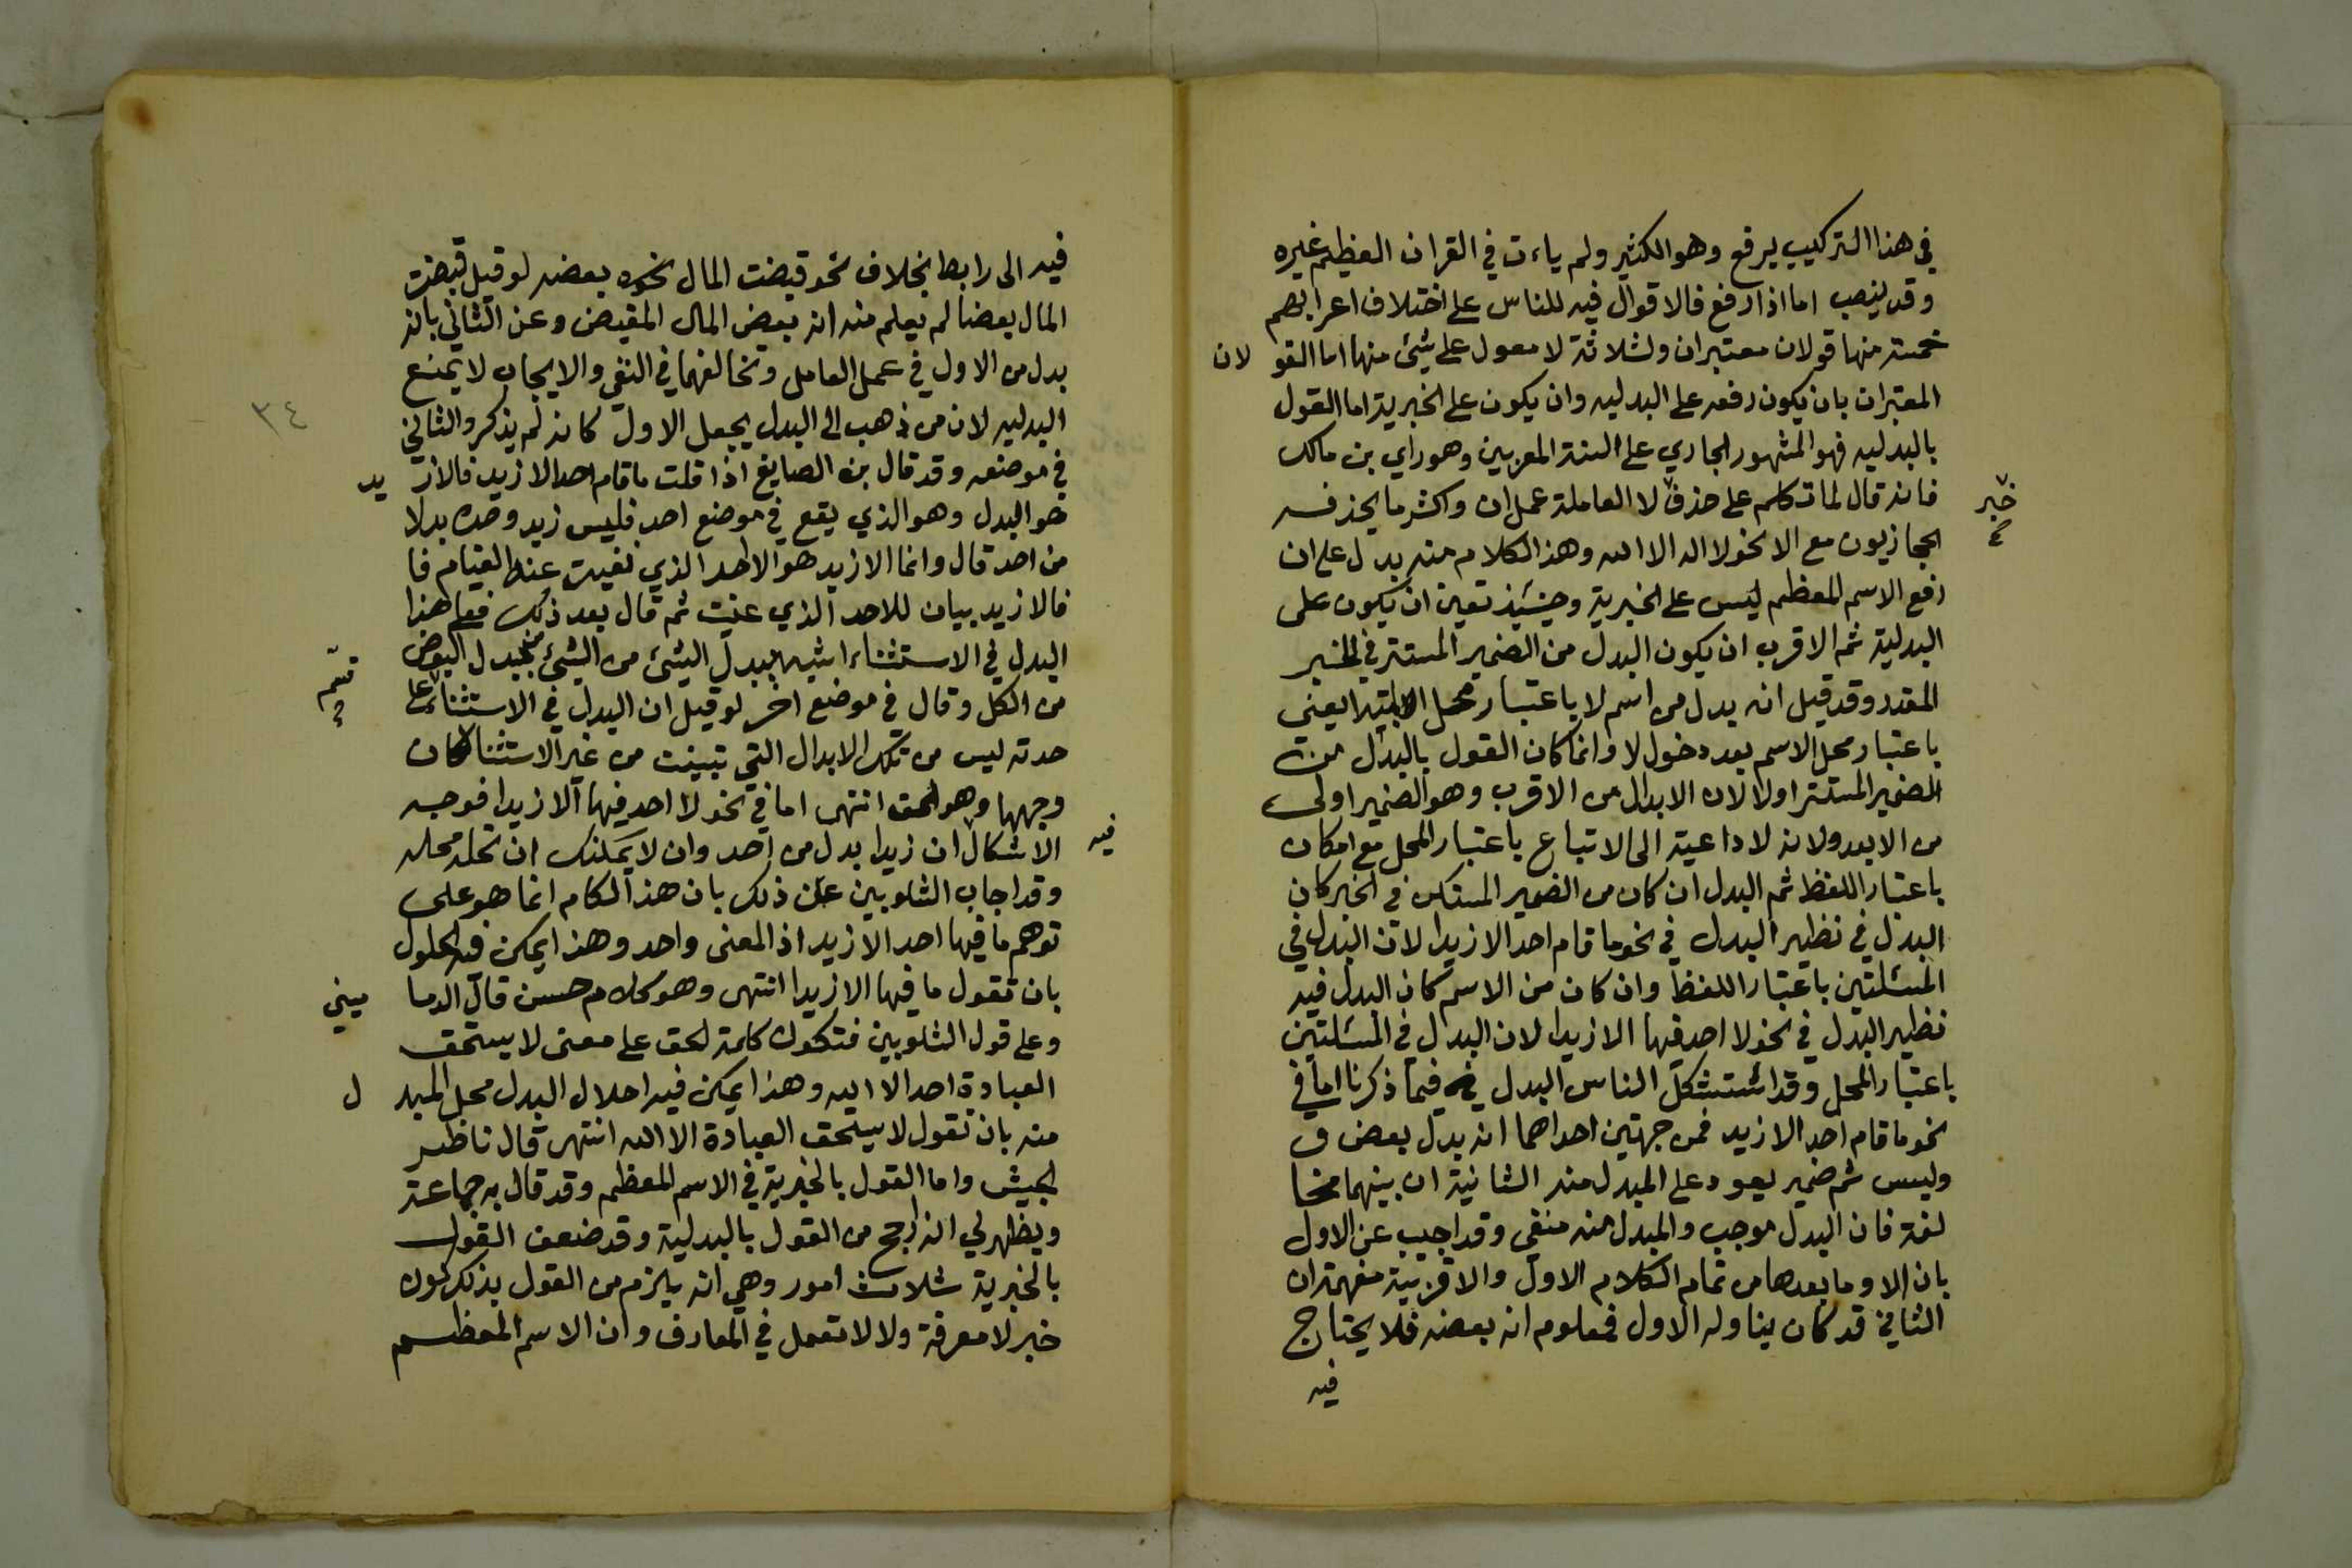 في هذا التركيب يرفع وهو الكثير ولم ياءت في القران العظيم غيره
وقد ينصب اما اذا رفع فالاقوال فيه للناس على اختلاف اعرابهم
خمسة منها قولان معتبران وثلاثة لا معول على شئ منها اما القو لان
المعتبران بان يكون رفعه على البدليه وان يكون على الخبرية اما القول
بالبدليه فهو المشهور الجاري على السنة المعربين وهو راي بن مالك
فانه قال لما تكلم على حذف خبر لا العاملة عمل ان واكثر ما يحذفه
الحجازيون مع الا نحو لا اله الا الله وهذا الكلام منه يدل على ان
رفع الاسم المعظم ليس على الخبرية وحينئذ تعين ان يكون على
البدلية ثم الاقرب ان يكون البدل من الضمير المستتر في الخبر
المقدر وقد قيل انه بدل من اسم لا باعتبار محل الابتدا يعني
باعتبار محل الاسم بعد دخول لا وانما كان القول بالبدل من
الضمير المستتر اولا لان الابدال من الاقرب وهو الضمير اولى
من الابعد ولانه لا داعية الى الاتباع باعتبار المحل مع امكان
باعتبار اللفظ ثم البدل ان كان من الضمير المستكن في الخبر كان
البدل في نظير البدل في نحو ما قام احد الا زيدا لان البدل في
المسئلتين باعتبار اللفظ وان كان من الاسم كان البدل فيه
نظير البدل في نحو لا احد فيها الا زيدا لان البدل في المسئلتين
باعتبار المحل وقد استشكل الناس البدل فيما ذكرنا اما في
نحو ما قام احد الا زيد فمن جهتين احداهما انه بدل بعض و
وليس ثم ضمير يعود على المبدل منه الثانية ان بينهما مخا
لفة فان البدل موجب والمبدل منه منفي وقد اجيب عن الاول
بان الا وما بعدها من تمام الكلام الاول والا قرينة مفهمة ان
الثاني قد كان يناوله الاول فمعلوم انه بعضه فلا يحتاج
فيه
فيه الى رابط بخلاف نحو قبضت المال نحوه بعضه لو قيل قبضت
المال بعضا لم يعلم منه انه بعض المال المقبض وعن الثاني بانه
بدل من الاول في عمل العامل وتخالفهما في النفي والايجاب لا يمنع
البدليه لان من ذهب الى البدل يجعل الاول كانه لم يذكر والثاني
في موضعه وقد قال بن الصايغ اذا قلت ما قام احد الا زيد فالا ز يد
هو البدل وهو الذي يقع في موضع احد فليس زيد وحده بدلا
من احد قال وانما الا زيد هو الاحد الذي نفيت عنه القيام فا
فالا زيد بيان للاحد الذي عنيت ثم قال بعد ذلك فعلى هذا
البدل في الاستثناء اشبه ببدل الشئ من الشئ من بدل البعض
من الكل وقال في موضع اخر لو قيل ان البدل في الاستثناء قسم على
حدته ليس من تلك الابدال التي تبينت من غير الاستثنا لكان
وجهها وهو الحق انتهى اما في نحو لا احد فيها الا زيدا فوجه
الاشكال فيه ان زيدا بدل من احد وان لا يمكنك ان تحله محله
وقد اجاب الشلوبين عن ذلك بان هذا الكلام انما هو على
توهم ما فيها احد الا زيد اذ المعنى واحد وهذا يمكن فيه الحلول
بان تقول ما فيها الا زيدا انتهى وهو كلام حسن قال الدما ميني
وعلى قول الشلوبين فتكون كلمة الحق على معنى لا يستحق
العبادة احد الا الله وهذا يمكن فيه احلال البدل محل المبد ل
منه بان تقول لا يستحق العبادة الا الله انتهى قال ناظر
الجيش واما القول بالخبرية في الاسم المعظم وقد قال به جماعة
ويظهر لي انه ارجح من القول بالبدلية وقد ضعف القول
بالخبرية بثلاث امور وهي انه يلزم من القول بذلك كون
خبر لا معرفة ولا لا تعمل في المعارف وان الاسم المعظم
٣٤